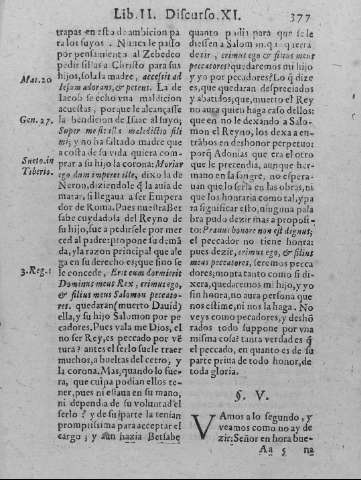 Lib. II. Discurso. XI. 377
trapas en esta de ambicion pa
ra los suyos. Nunca le passo
por pensamiento al Zebedeo
pedir sillas a Christo para sus
Mat. 20
hijos, sola la madre, accesit ad
Iesum adorans, & petens. La de
Iacob se echò vna maldicion
acuestas, porque le alcançasse
Gen. 27.
la bendicion de Isaac al suyo;
Super me sit illa maledictio fili
mi; y no ha faltado madre que
a costa de su vida quiera com-
Sueto. in
Tiberio.
prar a su hijo la corona: Moriar
ego dum imperet ille, dixo la de
Neron, diziendole q̃ la auia de
matar, si llegaua a ser Impera-
dor de Roma. Pues nuestra Bet
sabe cuydadola del Reyno de
su hijo, fue a pedirsele por mer
ced al padre: propone su demã
da, y la razon principal que ale
ga en su derecho es; que sino se
3. Reg. 1
le concede, Erit cum dormierit
Dominus meus Rex, erimus ego,
& filius meus Salomon peccato-
res. quedaran (muerto Dauid)
ella, y su hijo Salomon por pe-
cadores. Pues vala me Dios, el
no ser Rey, es peccado por vẽ
tura? antes el serlo suele traer
muchos, a bueltas del cetro, y
la corona. Mas, quando lo fue-
ra, que culpa podian ellos te-
ner, pues ni estaua en su mano,
ni dependia de su voluntad el
serlo? y de su parte la tenian
promptissima para acceptar el
cargo; y aun hazia Betsabe
quanto podia para que se le
diessen a Salomon. q̃ querra
dezir, erimus ego & filius meus
peccatores: quedaremos mi hijo
y yo por pecadores? Lo q̃ dize
es, que quedaran despreciados
y abatidos; que, muerto el Rey
no aura quien haga caso dellos:
que en no le dexando a Salo-
mon el Reyno, los dexa a en-
trãbos en deshonor perpetuo:
porq̃ Adonias que era el otro
que le pretendia, aunque her-
mano en la sangre, no espera-
uan que lo seria en las obras, ni
que los honraria como tal, y pa
ra significar esto, ninguna pala
bra pudo dezir mas a proposi-
to: Prauus honore non est dignus;
el peccador no tiene honra:
pues dezir, erimus ego, & filius
meus peccatores, seremos pecca
dores; monta tanto como si di-
xera, quedaremos mi hijo, y yo
sin honra, no aura persona que
nos estime, ni nos la haga. No
veys como pecadores, y deshõ
rados todo suppone por vna
misma cosa? tanta verdad es q̃
el pecado, en quanto es de su
parte priua de todo honor, de
toda gloria.
§. V.
VAmos a lo segundo, y
veamos como no ay de
zir: Señor en hora bue-
Aa 5 na